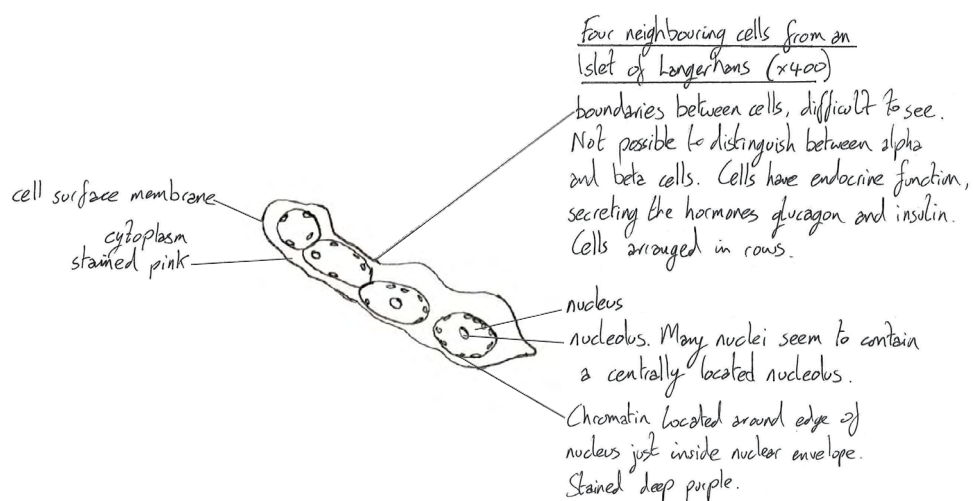 Four neighbouring cells from an
Islet of Langerhans (x400)
boundaries between cells, difficult to see.
Not possible to distinguish between alpha
and beta cells. Cells have endocrine function,
secreting the hormones glucagon and insulin.
Cells arranged in rows.
cell surface membrane
cytoplasm
stained pink
nucleus
nucleolus. Many nuclei seem to contain
a centrally located nucleolus.
Chromatin located around edge of
nucleus just inside nuclear envelope.
Stained deep purple.